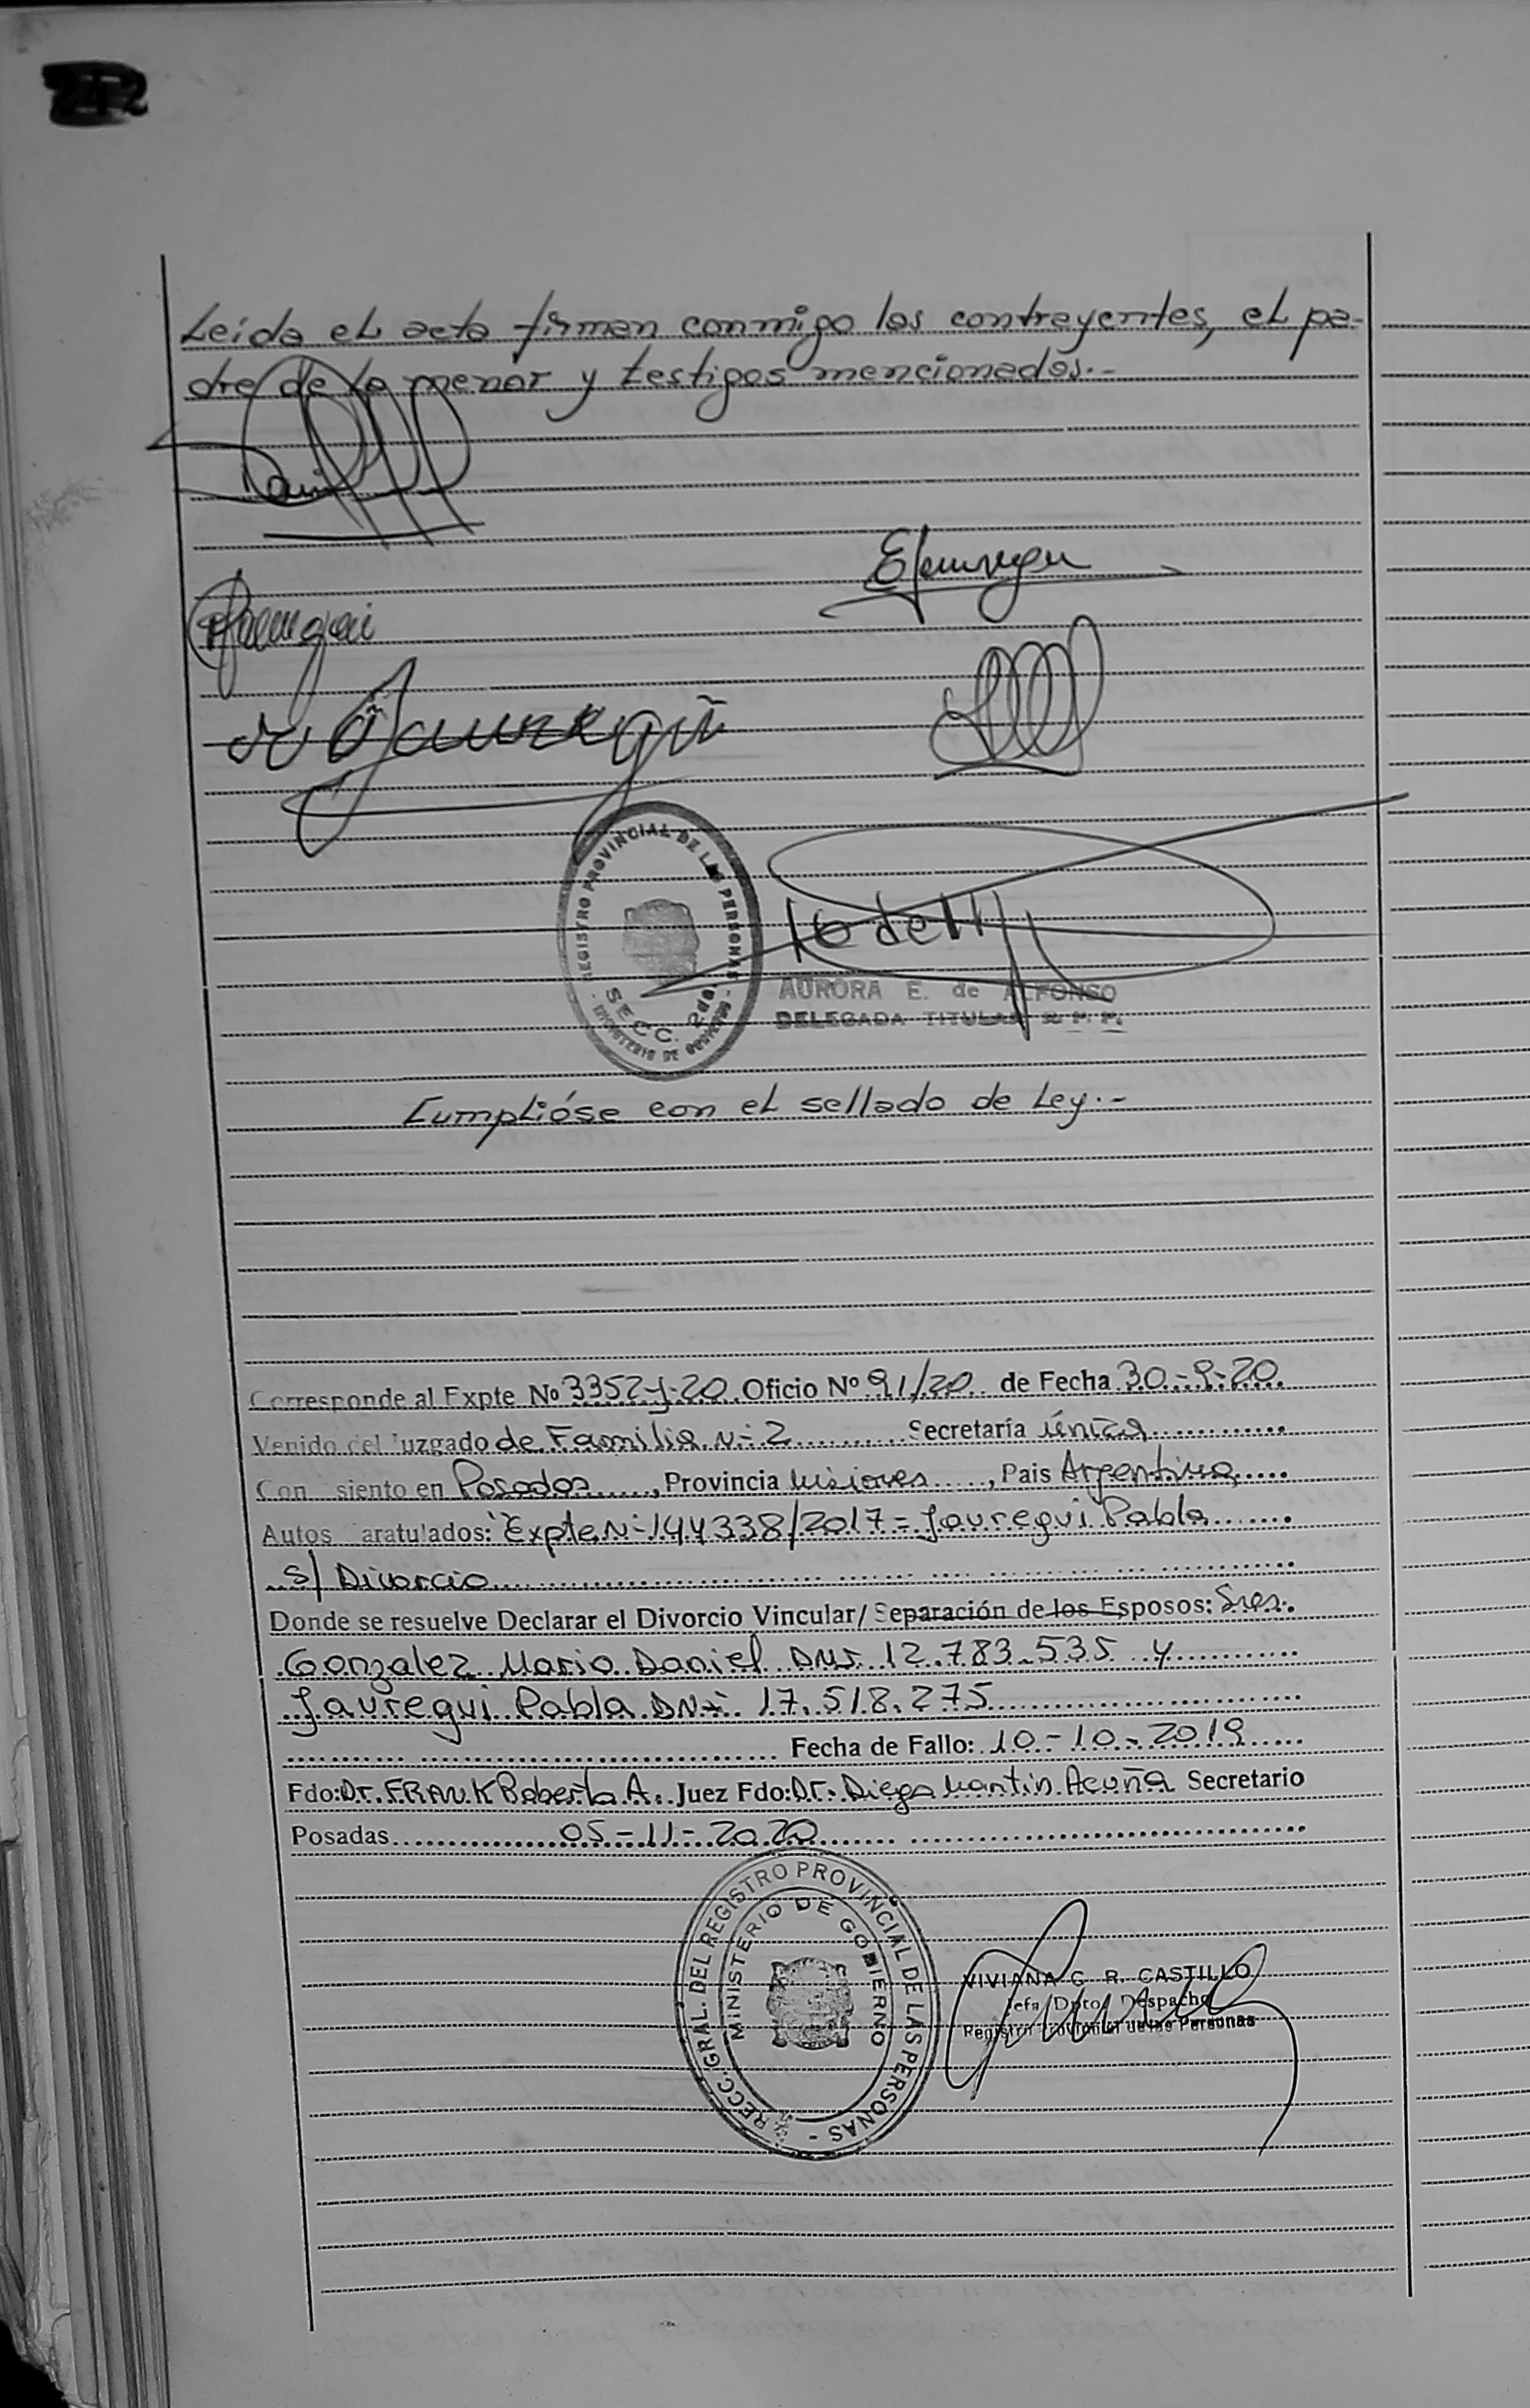 242
Leída el acta firman conmigo los contrayentes, el pa-
dre de la menor y testigos mencionados.-
REGISTRO PROVINCIAL DE LAS PERSONAS
SECC. 2da.
MINISTERIO DE GOBIERNO
AURORA E. de ALFONSO
DELEGADA TITULAR R. P. P.
Cumplióse con el sellado de Ley.-
Corresponde al Expte No 3352-J-20 Oficio Nº 91/20 de Fecha 30-9-20
Venido del Juzgado de Familia Nº 2 Secretaría única
Con siento en Posadas, Provincia Misiones, Pais Argentina
Autos aratulados: "Expte Nº 144338/2017 = Jauregui Pabla
s/ Divorcio
Donde se resuelve Declarar el Divorcio Vincular/ Separación de los Esposos: Sres.
Gonzalez Mario Daniel DNI 12.783.535 y
Jauregui Pabla DNI 17.518.275
Fecha de Fallo: 10-10-2019
Fdo: Dr. FRANK Roberto A. Juez Fdo: Dr. Diego Martin Acuña Secretario
Posadas 05-11-2020
RECC. GRAL. DEL REGISTRO PROVINCIAL DE LAS PERSONAS -
MINISTERIO DE GOBIERNO
VIVIANA G. R. CASTILLO
Jefa Dpto. Despacho
Registro Provincial de las Personas